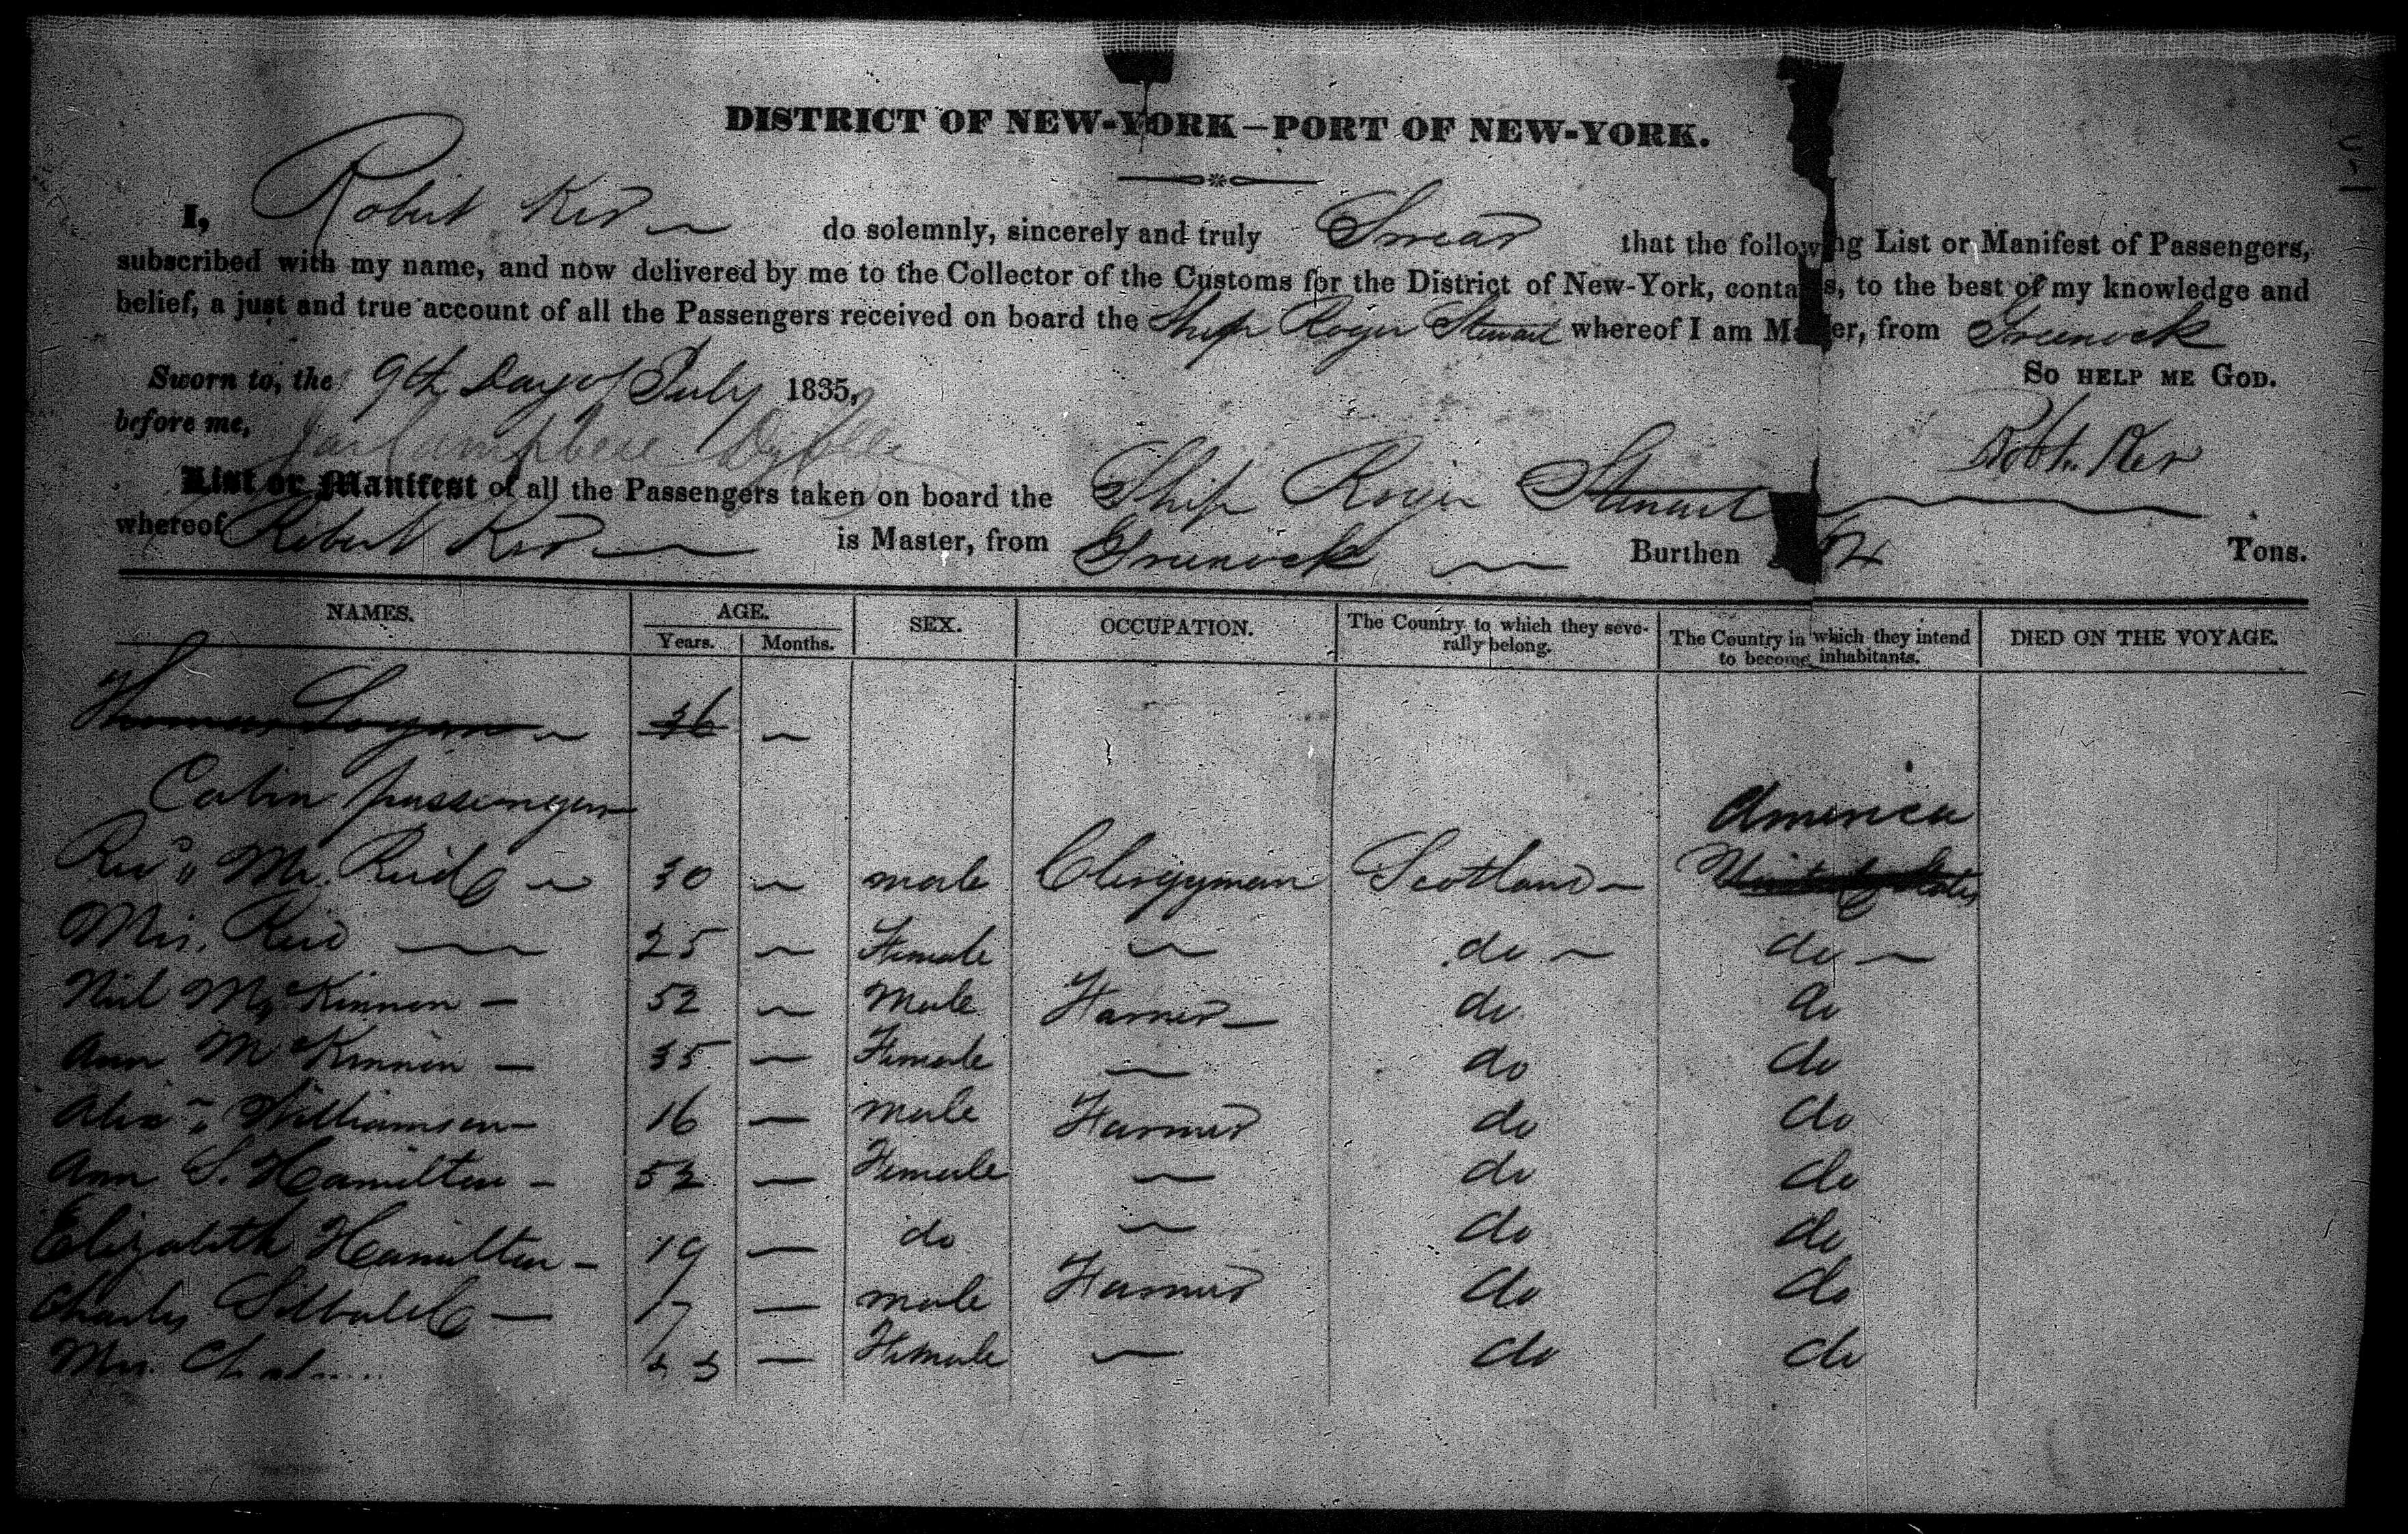 DISTRICT OF NEW-YORK—PORT OF NEW-YORK.
I, Robert Ker do solemnly, sincerely and truly Swear that the following List or Manifest of Passengers,
subscribed with my name, and now delivered by me to the Collector of the Customs for the District of New-York, contains, to the best of my knowledge and
belief, a just and true account of all the Passengers received on board the Ship Roger Stewart whereof I am Master, from Greenock
Sworn to, the 9th Day of July 1835,
So HELP ME GOD.
before me, Jas Campbell
Robt. Ker
List or Manifest of all the Passengers taken on board the Ship Roger Stewart
whereof Robert Ker is Master, from Greenock Burthen Tons.
NAMES. AGE. SEX. OCCUPATION. The Country to which they seve- The Country in which they intend DIED ON THE VOYAGE.
Years. Months. rally belong. to become inhabitants.
Thomas Logan 36
Cabin passengers America
Revd. Mr. Reid 30 male Clergyman Scotland United States
Mrs. Reid 25 Female do do
Neil McKinnon 52 Male Farmer do do
Ann McKinnon 35 Female do do
Alexr. Williamson 16 male Farmer do do
Ann S. Hamilton 52 Female do do
Elizabeth Hamilton 19 do do do
Charles 17 male Farmer do do
Mrs. Female do do